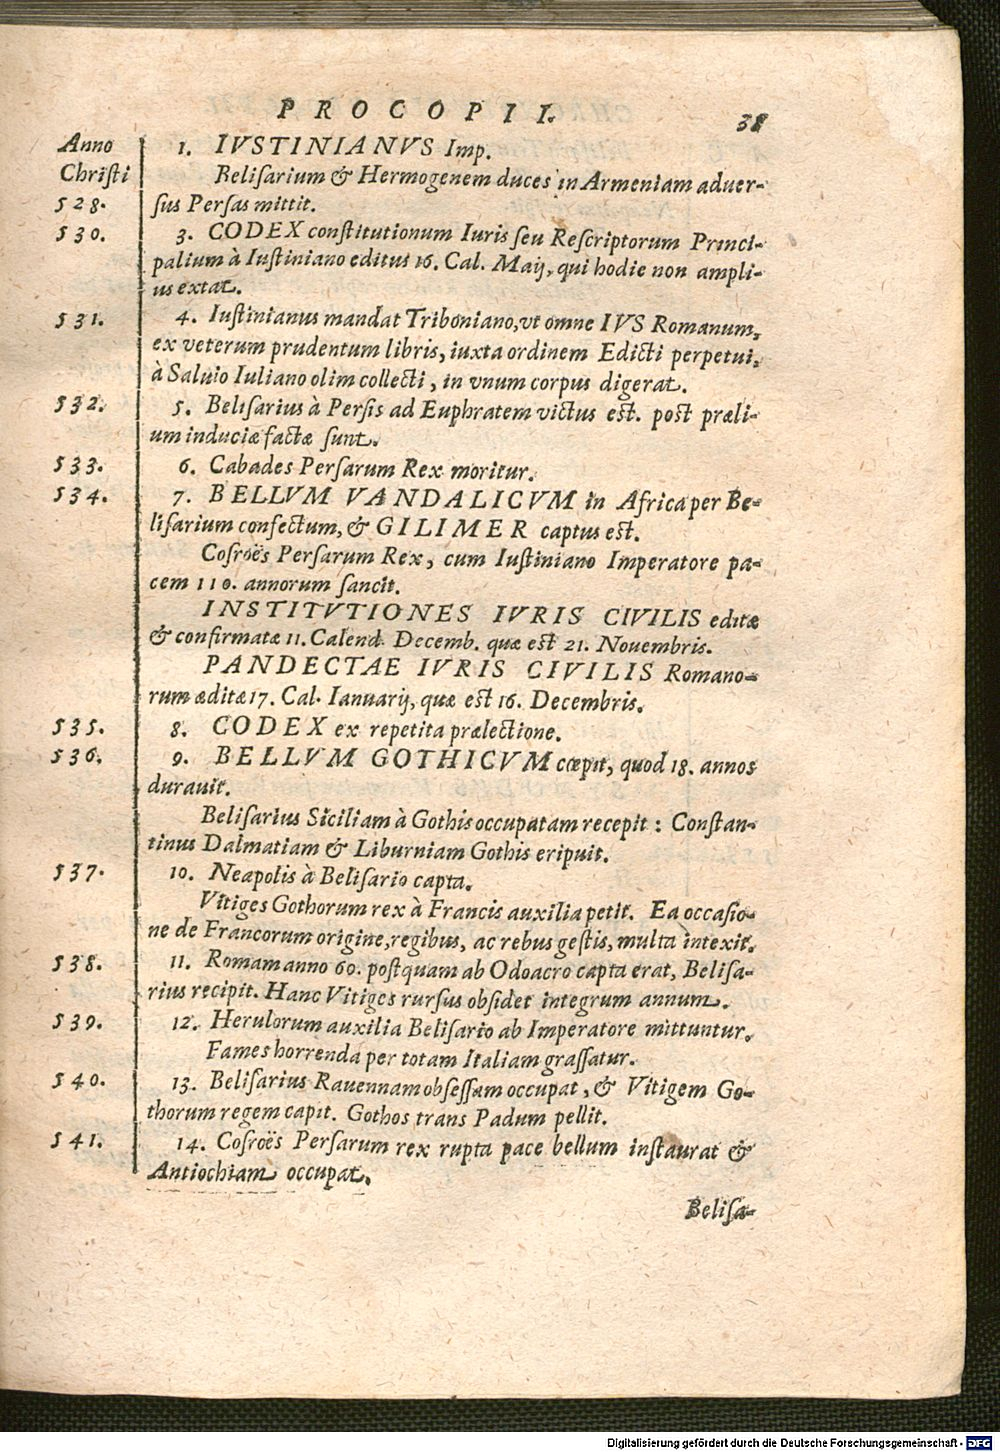 PROCOPII.
38
Anno 1. IVSTINIANVS Imp.
Christi Beliſarium & Hermogenem duces in Armeniam aduer-
528. ſus Perſas mittit.
530. 3. CODEX conſtitutionum Iuris ſeu Reſcriptorum Princi-
palium à Iuſtiniano editus 16. Cal. Maij, qui hodie non ampli-
us extat.
531. 4. Iuſtinianus mandat Triboniano, vt omne IVS Romanum,
ex veterum prudentum libris, iuxta ordinem Edicti perpetui,
à Saluio Iuliano olim collecti, in vnum corpus digerat.
532. 5. Beliſarius à Perſis ad Euphratem victus eſt. poſt præli-
um induciæ factæ ſunt.
533. 6. Cabades Perſarum Rex moritur.
534. 7. BELLVM VANDALICVM in Africa per Be-
liſarium confectum, & GILIMER captus eſt.
Coſroës Perſarum Rex, cum Iuſtiniano Imperatore pa-
cem 110. annorum ſancit.
INSTITVTIONES IVRIS CIVILIS editæ
& confirmatæ 11. Calend. Decemb. quæ eſt 21. Nouembris.
PANDECTAE IVRIS CIVILIS Romano-
rum æditæ 17. Cal. Ianuarij, quæ eſt 16. Decembris.
535. 8. CODEX ex repetita prælectione.
536. 9. BELLVM GOTHICVM cœpit, quod 18. annos
durauit.
Beliſarius Siciliam à Gothis occupatam recepit: Conſtan-
tinus Dalmatiam & Liburniam Gothis eripuit.
537. 10. Neapolis à Beliſario capta.
Vitiges Gothorum rex à Francis auxilia petit. Ea occaſio-
ne de Francorum origine, regibus, ac rebus geſtis, multa intexit.
538. 11. Romam anno 60. poſtquam ab Odoacro capta erat, Beliſa-
rius recipit. Hanc Vitiges rurſus obſidet integrum annum.
539. 12. Herulorum auxilia Beliſario ab Imperatore mittuntur.
Fames horrenda per totam Italiam graſſatur.
540. 13. Beliſarius Rauennam obſeſſam occupat, & Vitigem Go-
thorum regem capit. Gothos trans Padum pellit.
541. 14. Coſroës Perſarum rex rupta pace bellum inſtaurat &
Antiochiam occupat.
Beliſa-
Digitalisierung gefördert durch die Deutsche Forschungsgemeinschaft - DFG